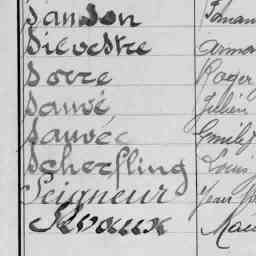 Sanson
Silvestre Arman
Sorre Roger
Sauvé Julien
Sauvée Emile
Scherfling Louis
Seigneur Jean